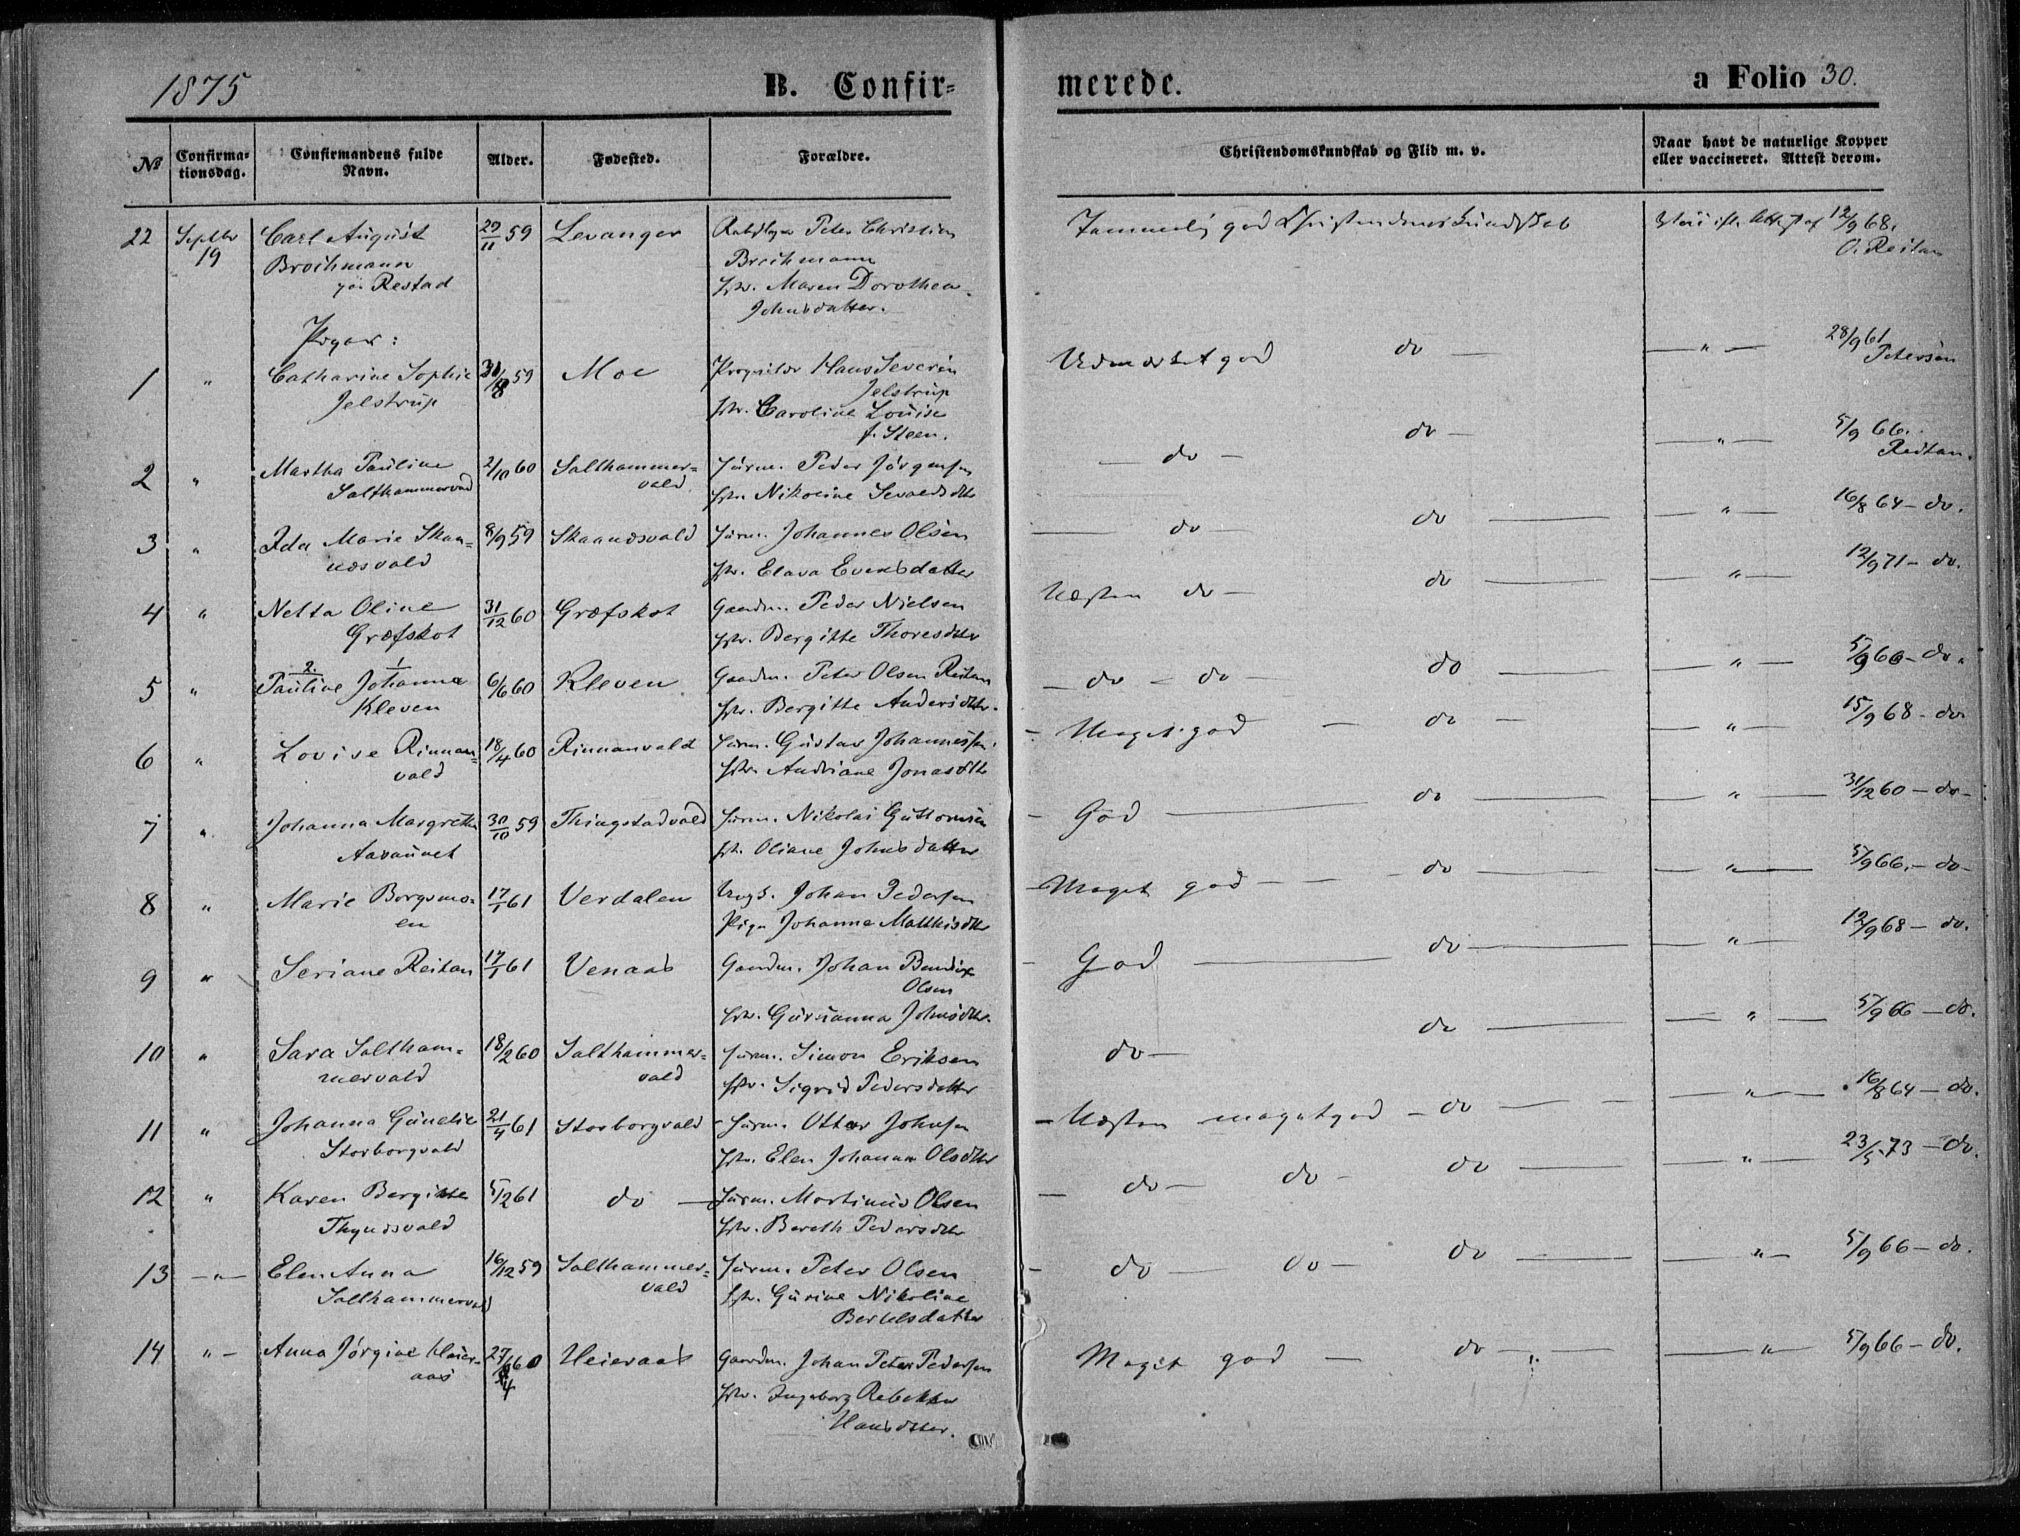 1875 B. Confir=
merede. a Folio 30.
No Confirma=tionsdag. Confirmandens fulde Navn. Alder. Fødested. Forældre. Christendomskundskab og Flid m. v. Naar havt de naturlige Kopper eller vaccineret. Attest derom.
22 Septbr 19 Carl August 29/11 59 Levanger Peter Christian Temmelig god Christendomskundskab 12/9 68.
Brochmann Brochmann O. Reitan
Restad Maren Dorothea
Johnsdatter.
Piger:
1 " Catharine Sophie 59 Moe Proprietær Hans Severin Udmærket god do — " — 28/9 61
Jelstrup Jelstrup Petersen
Caroline Louise
f. Steen.
2 " Martha Pauline 2/10 60 Salthammer= Huusm. Peder Jørgensen — do — do — — " — 5/9 66.
Salthammervald vald Htr. Nikoline Sevaldsdtr Reitan.
3 " Ida Marie Skaa= 8/9 59 Skaanesvald Huusm. Johannes Olsen — do — do — — " — 16/8 64 — do.
nesvald Htr. Elava Evensdatter
4 " Netta Oline 31/12 60 Græfskot Gaardm. Peder Nielsen Næsten do — do — — " — 12/9 71 — do.
Græfskot Htr. Bergitte Thoresdtr
5 " 2. Pauline 1 Johanna 6/6 60 Kleven Gaardm. Peter Olsen Reitan — do — do — do — — " — 5/9 66 — do.
Kleven Htr. Bergitte Andersdtr.
6 " Lovise Rinnan= 18/4 60 Rinnanvald Huusm. Gustav Johannessen — Meget god — do — — " — 15/9 68 — do
vald Htr. Andriane Jonasdtr
7 " Johanna Margretha 30/10 59 Thingstadvald Huusm. Nikolai Guttormsen — God — do — — " — 31/12 60 — do —
Aavannet Htr. Oliane Johnsdatter
8 " Marie Borgsmo= 17/1 61 Verdalen Ungk. Johan Pedersen — Meget god — do — — " — 5/9 66. — do —
en Pige Johanna Mathisdtr
9 " Seriane Reitan 17/1 61 Venaas Gaardm. Johan Bendix — God — do — — " — 12/9 68 — do.
Olsen
Htr. Gurianna Johnsdtr.
10 " Sara Saltham= 18/2 60 Salthammer= Huusm. Simon Eriksen do — do — — " — 5/9 66 — do.
mervald vald Htr. Sigrid Pedersdatter
11 " Johanna Gunelie 21/4 61 Storborgvald Huusm. Otter Johnsen — Næsten meget god — do — — " — 16/8 64 — do.
Storborgvald Htr. Elen Johanna Olsdtr
12 " Karen Bergitte 5/2 61 do — Huusm. Martinus Olsen — do — do — do — — " — 23/5 73 — do.
Thyndsvald Htr. Bereth Pedersdtr
13 — " — Elen Anna 16/12 59 Salthammer= Huusm. Peter Olsen — do — do — do — — " — 5/9 66 — do.
Salthammervald vald Htr. Gurine Nikoline
Bertelsdatter
14 " — Anna Jørgine Heier= 27/4 60 Heieraas Gaardm. Johan Peter Pedersen Meget god — do — — " — 5/9 66 — do.
aas Htr. Ingeborg Rebekka
Hansdtter.